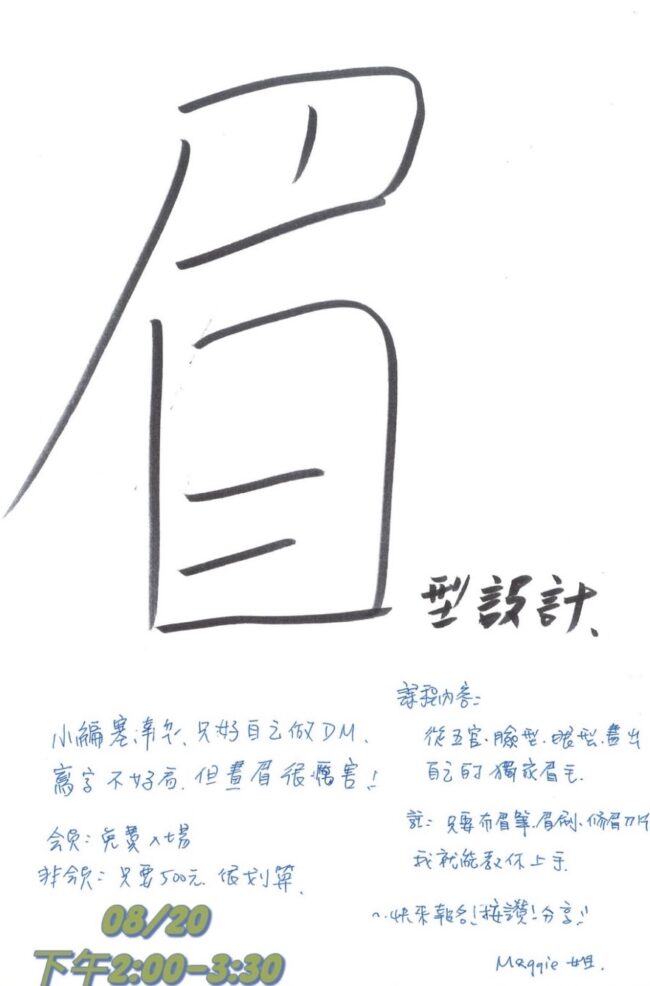 眉
型設計、
小編塞車爾、只好自己做DM、
寫字不好看、但畫眉很厲害!!
會員:免費入場
非會員:只要500元、很划算、
08/20
下午2:00-3:30
課程內容:
從五官、臉型、眼型、畫出
自己的獨家眉毛、
註:只要有眉筆、眉刷、修眉刀片
我就能教你上手、
~快來報名!按讚!分享!!
Maggie 姐、